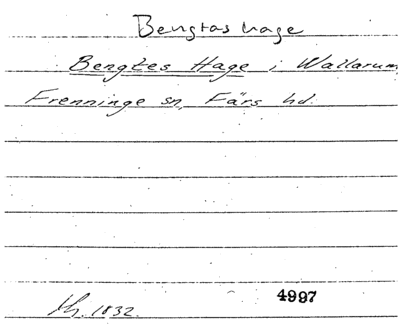 Bengtas hage
Bengtes Hage i Wallarum,
Frenninge sn, Färs hd.
4997
Lh. 1832.